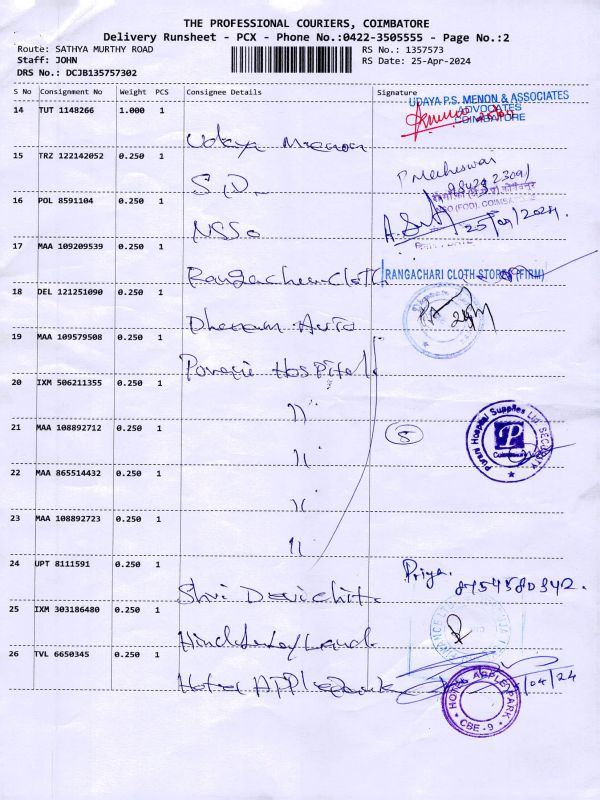 THE PROFESSIONAL COURIERS, COIMBATORE
Delivery Runsheet - PCX - Phone No.:0422-3505555 - Page No.:2
Route: SATHYA MURTHY ROAD
RS No.: 1357573
Staff: JOHN
RS Date: 25-Apr-2024
DRS No.: DCJB135757302
S No Consignment No Weight PCS Consignee Details Signature
UDAYA P.S. MENON & ASSOCIATES
ADVOCATES
COIMBATORE
14 TUT 1148266 1.000 1
Udaya Menon
15 TRZ 122142052 0.250 1
16 POL 8591104 0.250 1
25/04/2024
NSSO
17 MAA 109209539 0.250 1
Rangachari Cloth
RANGACHARI CLOTH STORES (FIRM)
18 DEL 121251090 0.250 1
19 MAA 109579508 0.250 1
Hospital
20 IXM 506211355 0.250 1
"
21 MAA 108892712 0.250 1
5
Hospital Supplies Ltd SECURITY
P
"
22 MAA 865514432 0.250 1
"
23 MAA 108892723 0.250 1
"
24 UPT 8111591 0.250 1
Priya.
8754580342.
Shri Devi Chit
25 IXM 303186480 0.250 1
26 TVL 6650345 0.250 1
Hotel
/04/24
HOTEL APPLE PARK
CBE - 9